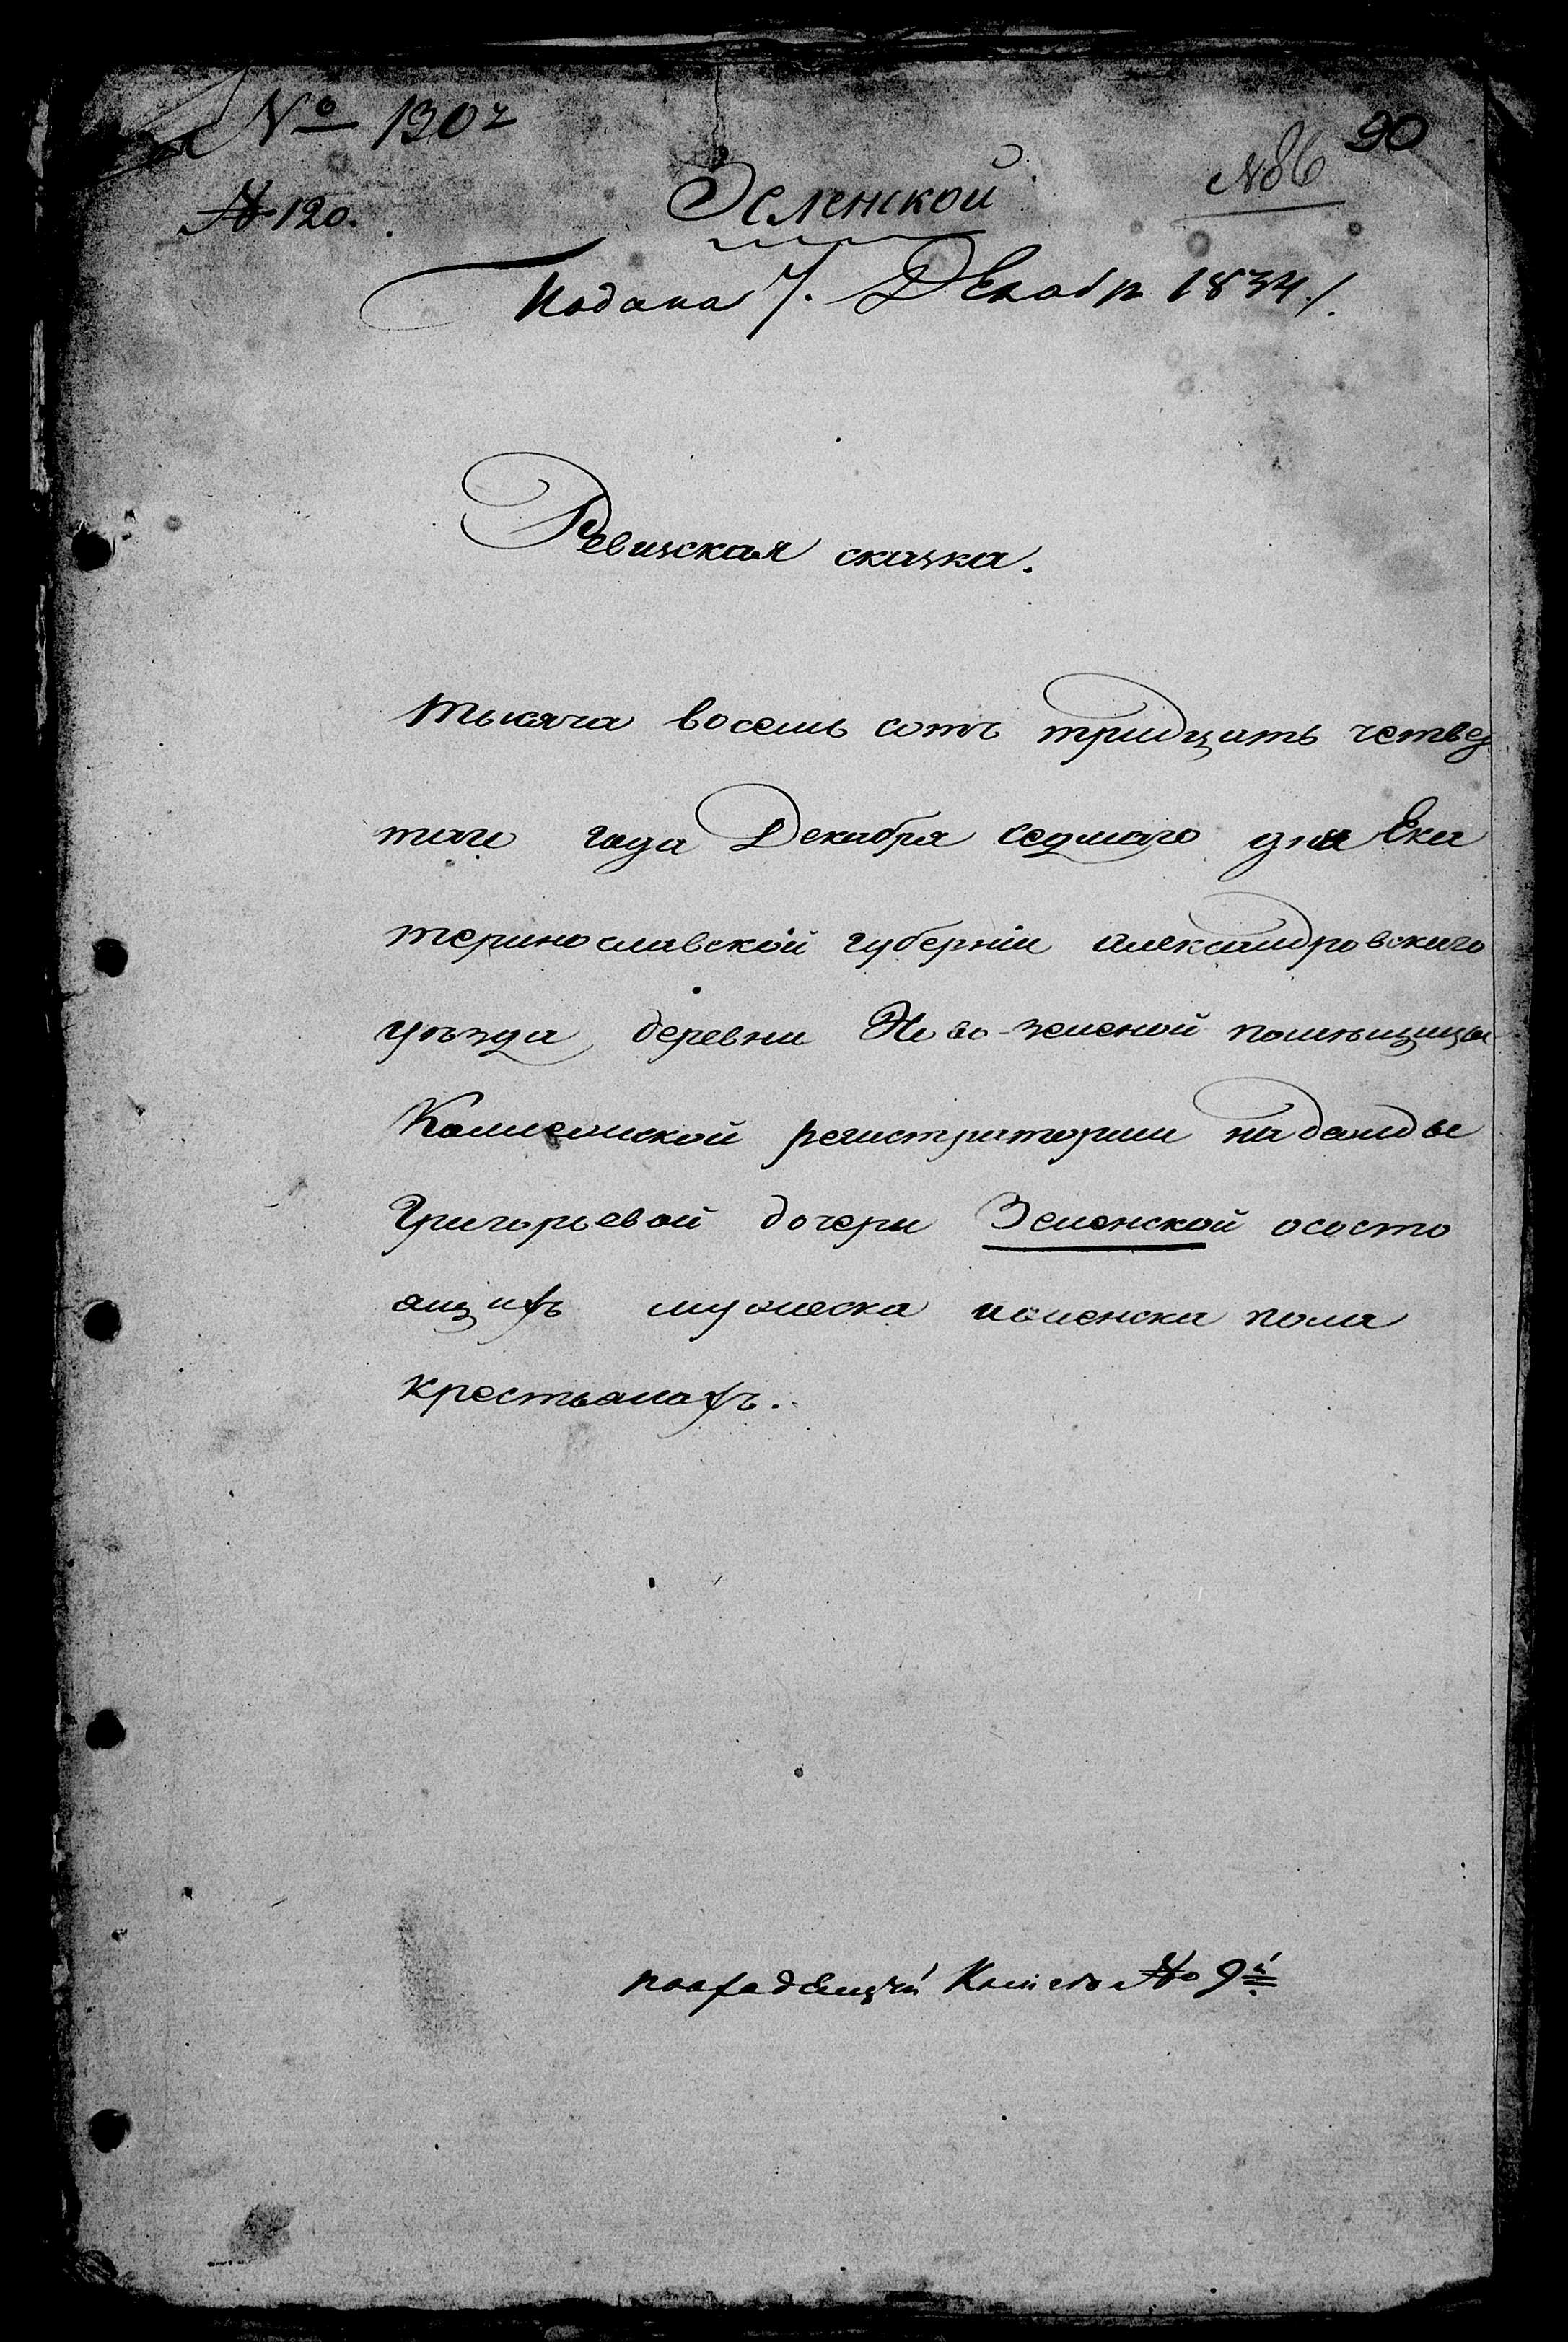 № 1302
90
№ 86
№ 120.
Зеленской
Подана 7. Декабр 1834.
Ревизская сказка.
тысяча восемь сотъ тридцать четвер
таго года Декабря седмаго дня Ека
теринославской губерніи александровскаго
уѣзда деревни Ново-зеленой помѣщицы
Колисской регистраторши надежды
Григорьевой дочери Зеленской ососто
ящихъ мужеска ироженска пола
крестьянахъ.
№ 9й